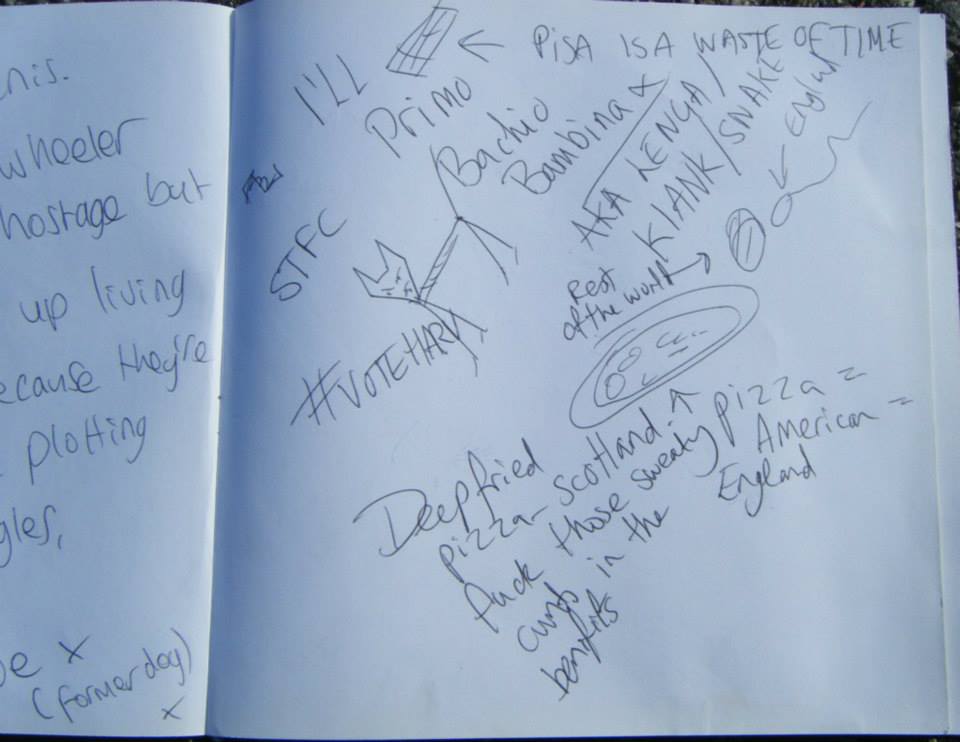 enis.
wheeler
hostage but
up living
ecause they're
plotting
gles,
x
(former dog)
x
I'LL
PISA IS A WASTE OF TIME
Primo
Bachio
Bambina x
AKA LENGA/
KLANK/SNAKE
STFC
#VOTEHARV
Rest
of the world
Deepfried
pizza - Scotland.
fuck those sweaty
cunts in the
benefits
pizza =
American =
England